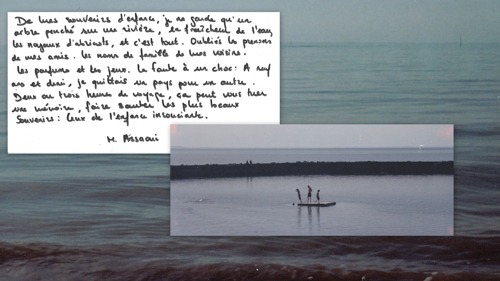 De mes souvenirs d'enfance, je ne garde qu'un
arbre penché sur une rivière, la fraîcheur de l'eau,
les noyaux d'abricots, et c'est tout. Oubliés les prénoms
de mes amis. les noms de famille de mes voisins.
les parfums et les jeux. la faute à un choc: A neuf
ans et demi, je quittais un pays pour un autre.
Deux ou trois heures de voyage, ça peut vous tuer
une mémoire, faire sauter les plus beaux
souvenirs: ceux de l'enfance insouciante.
M. Aïssaoui